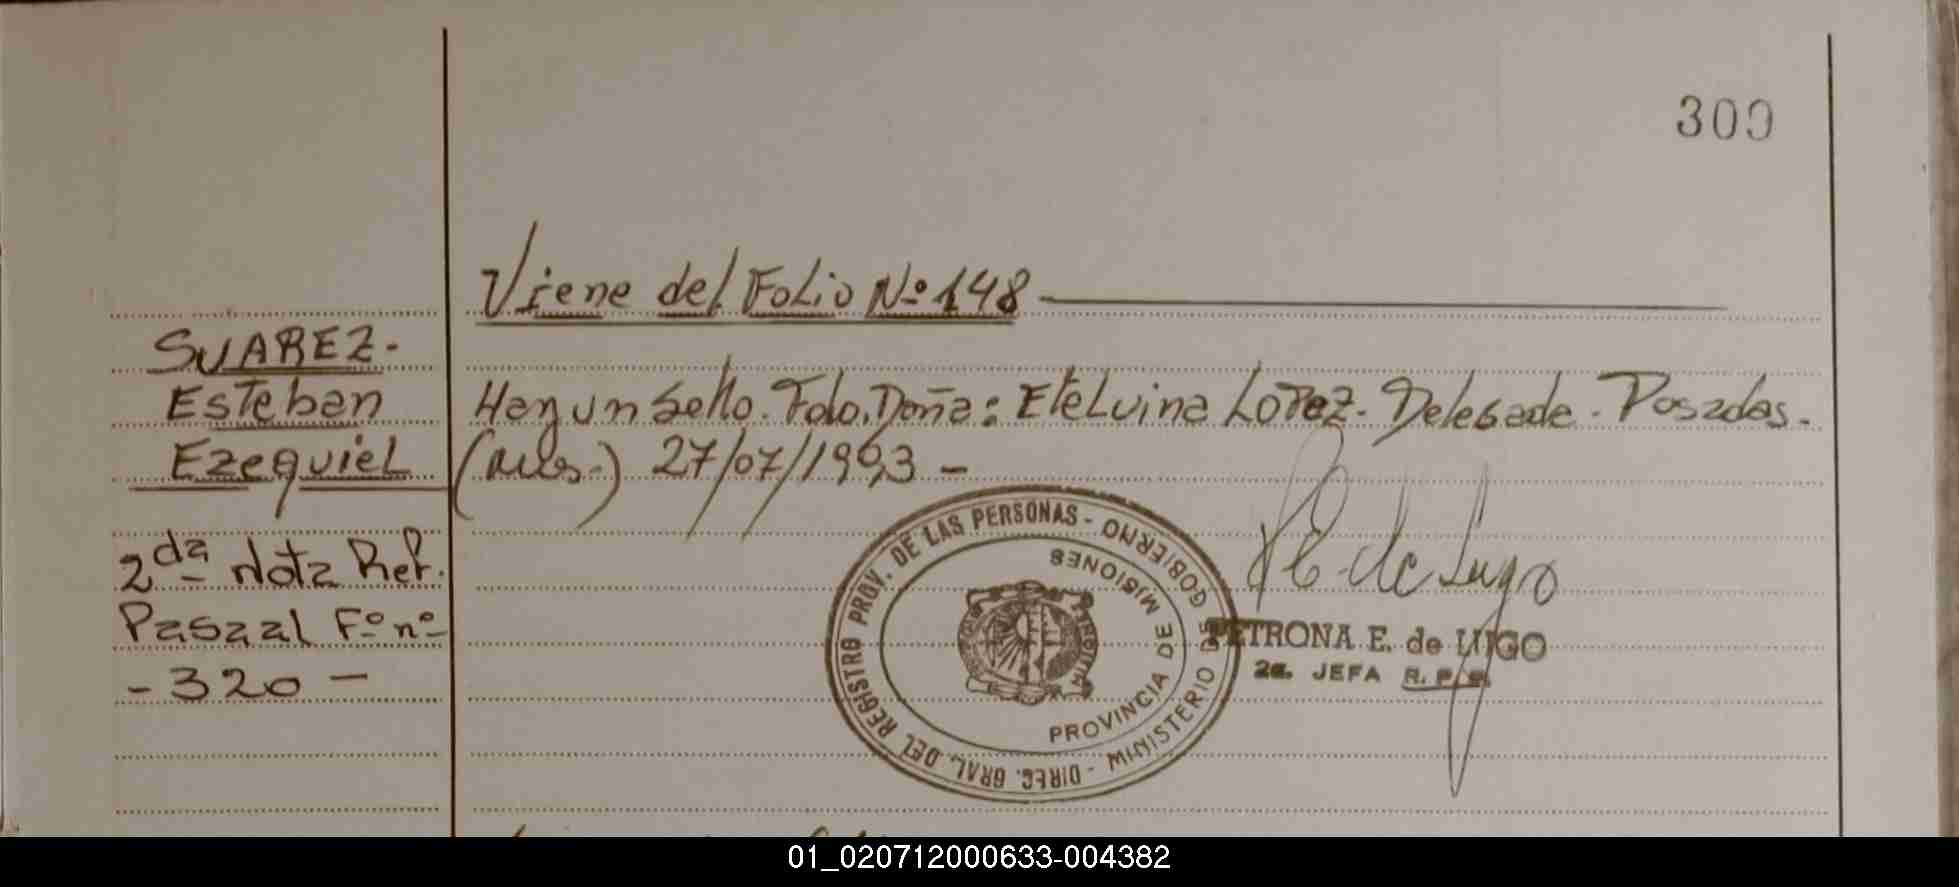 300
Viene del Folio Nº 148
SUAREZ-
Esteban
Ezequiel
Hay un Sello. Fdo. Doña: Etelvina Lopez. Delegada. Posadas.
(Mns.) 27/07/1993 -
2da Nota Ref.
Pasa al Fº nº
- 320 -
DIREC. GRAL. DEL REGISTRO PROV. DE LAS PERSONAS - MINISTERIO DE GOBIERNO
PROVINCIA DE MISIONES
P E. de Lugo
PETRONA E. de LUGO
2a. JEFA R. P. P.
01_020712000633-004382